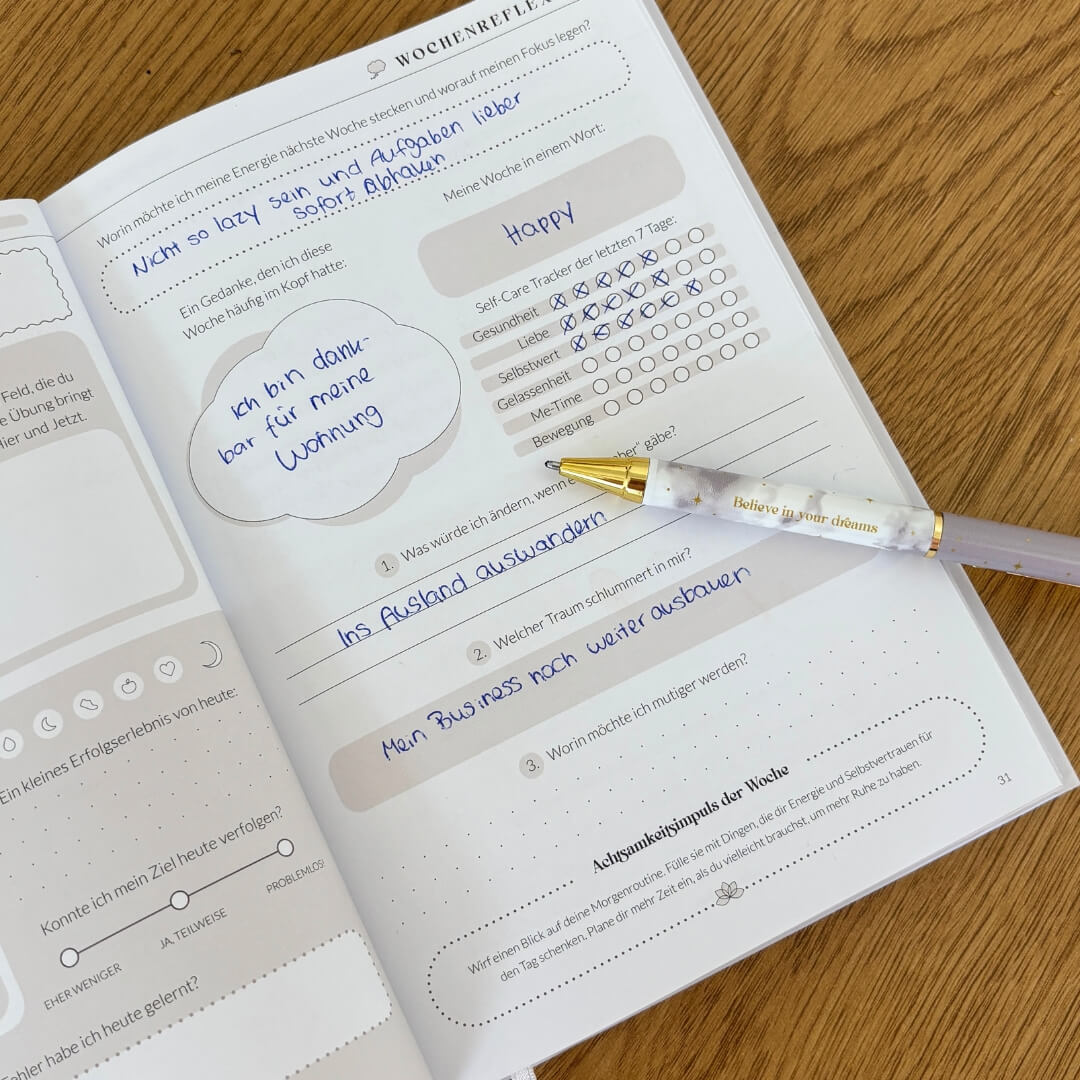 Feld, die du
e Übung bringt
Hier und Jetzt.
Ein kleines Erfolgserlebnis von heute:
Konnte ich mein Ziel heute verfolgen?
EHER WENIGER
JA, TEILWEISE
PROBLEMLOS!
Fehler habe ich heute gelernt?
WOCHENREFLEX
Worin möchte ich meine Energie nächste Woche stecken und worauf meinen Fokus legen?
Nicht so lazy sein und Aufgaben lieber
sofort Abhaken
Ein Gedanke, den ich diese
Woche häufig im Kopf hatte:
Ich bin dank-
bar für meine
Wohnung
Meine Woche in einem Wort:
Happy
Self-Care Tracker der letzten 7 Tage:
Gesundheit
Liebe
Selbstwert
Gelassenheit
Me-Time
Bewegung
1. Was würde ich ändern, wenn gäbe?
Ins Ausland auswandern
2. Welcher Traum schlummert in mir?
Mein Business noch weiter ausbauen
3. Worin möchte ich mutiger werden?
Achtsamkeitsimpuls der Woche
Wirf einen Blick auf deine Morgenroutine. Fülle sie mit Dingen, die dir Energie und Selbstvertrauen für
den Tag schenken. Plane dir mehr Zeit ein, als du vielleicht brauchst, um mehr Ruhe zu haben.
31
Believe in your dreams